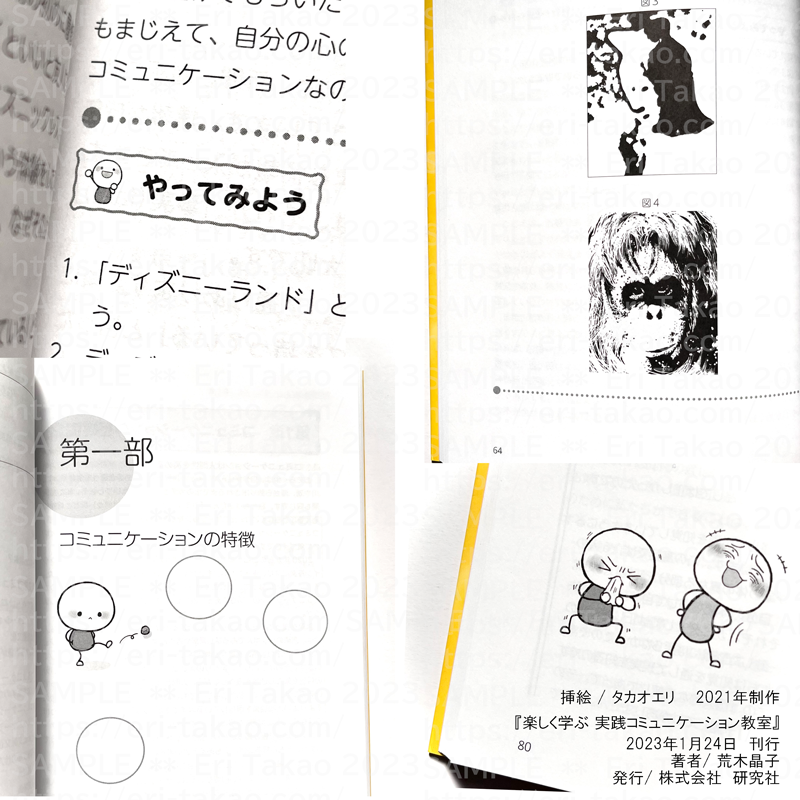 もまじえて、自分の心の
コミュニケーションなの
やってみよう
1. 「ディズニーランド」と
う。
図3
図4
64
第一部
コミュニケーションの特徴
80
挿絵 / タカオエリ 2021年制作
『楽しく学ぶ 実践コミュニケーション教室』
2023年1月24日 刊行
著者/ 荒木晶子
発行/ 株式会社 研究社
SAMPLE ** Eri Takao 2023
https://eri-takao.com/